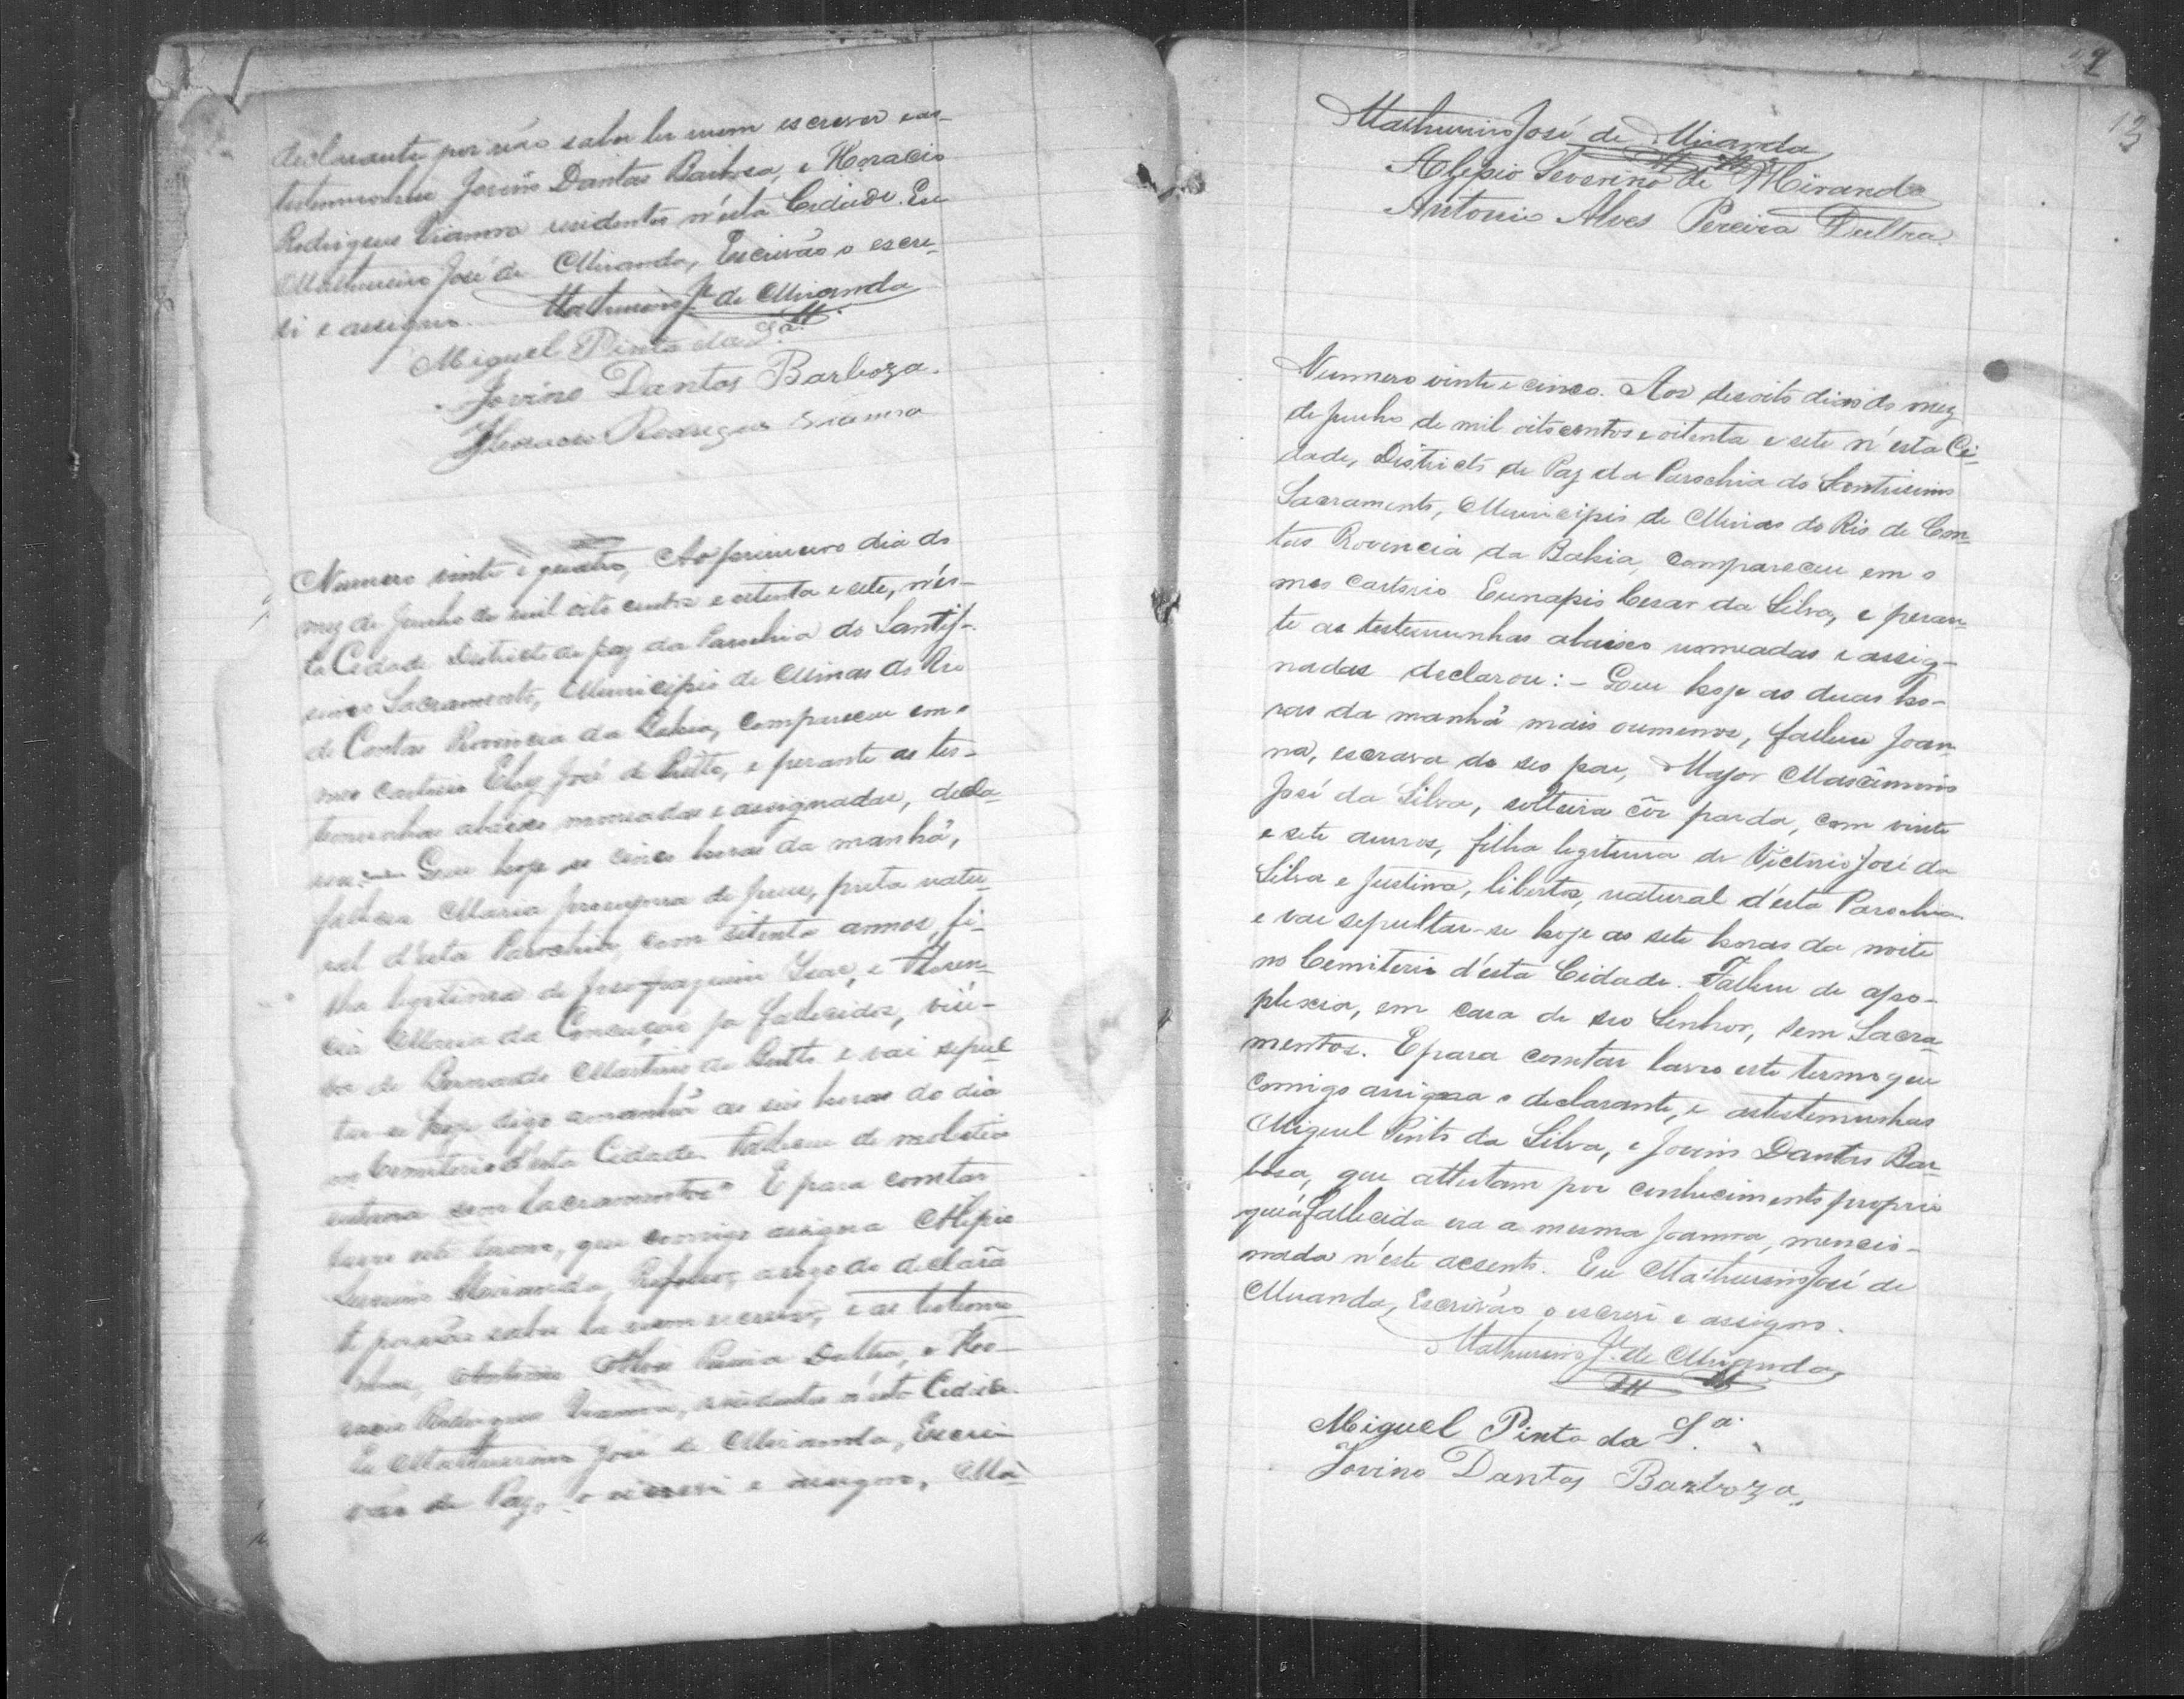 declarante por não saber ler nem escrever e as
testemunhas Jovino Dantas Barbosa, e Horacio
Rodrigues Vianna residentes n'esta Cidade. Eu
Mathurino José de Miranda, Escrivão o escre-
vi e assigno. Mathurino Je. de Miranda
Miguel Pinto da Sa.
Jovino Dantas Barboza.
Horacio Rodrigues Vianna
Numero vinte e quatro, Ao primeiro dia do
mez de Junho de mil oito centos e oitenta e sete, n'es-
ta Cidade Districto de paz da Parochia do Santis-
simo Sacramento, Municipio de Minas do Rio
de Contas Provincia da Bahia, compareceu em o
meo cartorio Eloy José de Britto, e perante as tes-
temunhas abaixo nomeadas e assignadas, decla-
rou: Que hoje as cinco horas da manhã,
falleceu Maria de Jesus, preta natu-
ral d'esta Parochia, com setenta annos, fi-
lha legitima de Joaquim e Floren-
cia Maria da Conceição ja fallecidos, viu-
va de Bernardo Martins de Britto e vai sepul
tar-se hoje digo amanhã as seis horas do dia
no Cemiterio d'esta Cidade. Falleceu de molestia
interna sem sacramentos. E para constar
lavro este termo, que comigo assigna Alipio
Severino Miranda, Professor, a rogo do declaran
te por não saber ler nem escrever, e as testemu
nhas, Antonio Alves Pereira Dultra, e Ho-
racio Rodrigues Vianna, residentes n'esta Cidade.
Eu Mathurino José de Miranda, Escri
vão de Paz, o escrevi e assigno. Ma
13
Mathurino José de Miranda
Alipio Severino de Miranda
Antonio Alves Pereira Dultra.
Numero vinte e cinco. Aos desoito dias do mez
de Junho de mil oito centos e oitenta e sete n'esta Ci-
dade, Districto de Paz da Parochia do Santissimo
Sacramento, Municipio de Minas do Rio de Con-
tas Provincia da Bahia, compareceu em o
meo Cartorio Eunapio Cesar da Silva, e peran-
te as testemunhas abaixo nomeadas e assig-
nadas declarou: - Que hoje as duas ho-
ras da manhã mais ou menos, falleceu Joan-
na, escrava de seo pae, Major
José da Silva, solteira côr parda, com vinte
e sete annos, filha legitima de Victorio José da
Silva e Justina, libertos, natural d'esta Parochia
e vae sepultar-se hoje as sete horas da noite
no Cemiterio d'esta Cidade. Falleceu de apo-
plexia, em casa de seo Senhor, sem Sacra-
mentos. E para constar lavro este termo que
comigo assigna o declarante, e as testemunhas
Miguel Pinto da Silva, e Jovino Dantas Bar-
bosa, que attestam por conhecimento proprio
que a fallecida era a mesma Joanna, mencio-
nada n'este acsento. Eu Mathurino José de
Miranda, Escrivão o escrevi e assigno.
Mathurino Je. de Miranda
Miguel Pinto da Sa.
Jovino Dantas Barboza,